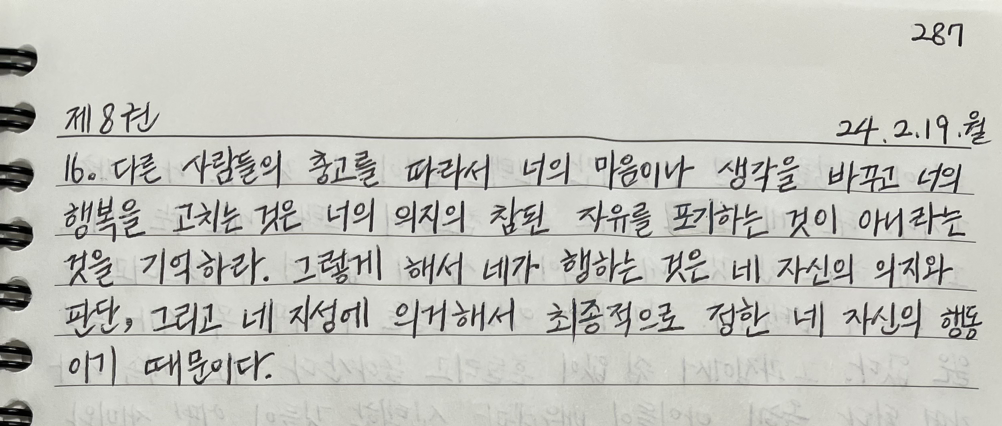 287
제8권
24.2.19.월
16. 다른 사람들의 충고를 따라서 너의 마음이나 생각을 바꾸고 너의
행복을 고치는 것은 너의 의지의 참된 자유를 포기하는 것이 아니라는
것을 기억하라. 그렇게 해서 네가 행하는 것은 네 자신의 의지와
판단, 그리고 네 지성에 의거해서 최종적으로 정한 네 자신의 행동
이기 때문이다.